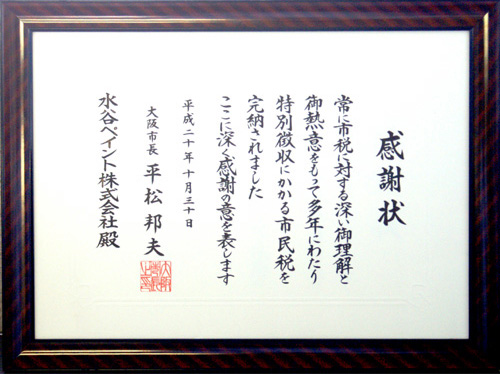 感謝状
常に市税に対する深い御理解と
御熱意をもって多年にわたり
特別徴収にかかる市民税を
完納されました
ここに深く感謝の意を表します
平成二十年十月三十日
大阪市長 平松邦夫
水谷ペイント株式会社殿